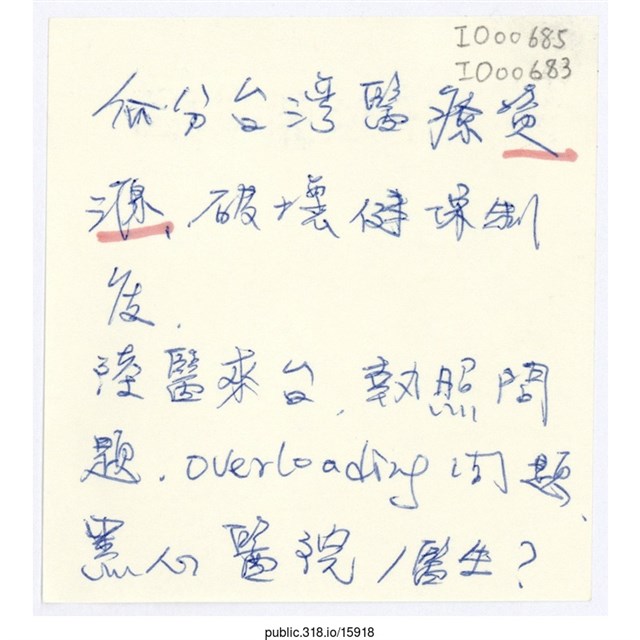 IO00685
IO00683
瓜分台灣醫療資
源,破壞健保制
度.
陸醫來台,執照問
題.overloading 問題、
黑心醫院/醫生?
public.318.io/15918